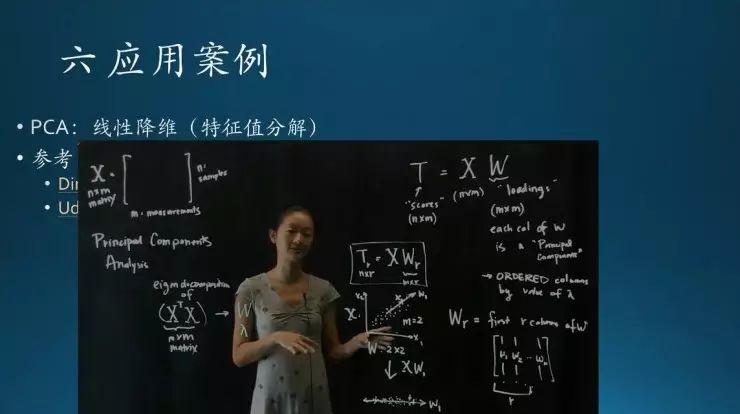 六 应用案例
• PCA：线性降维（特征值分解）
• 参考
• Din
• Ud
X =
n×m
matrix
n:
samples
m = measurements
Principal Components
Analysis
eigendecomposition
of
(XᵀX) → W
λ
m×m
matrix
T = X W
"scores"
(n×m)
(n×m)
"loadings"
(m×m)
each col of W
is a "Principal
Component"
→ ORDERED columns
by value of λ
Tr = X Wr
n×r
m×r
x₂
w₁
X
m=2
x₁
W = 2×2
↓ XW₁
w₁
Wr = first r columns of W
r